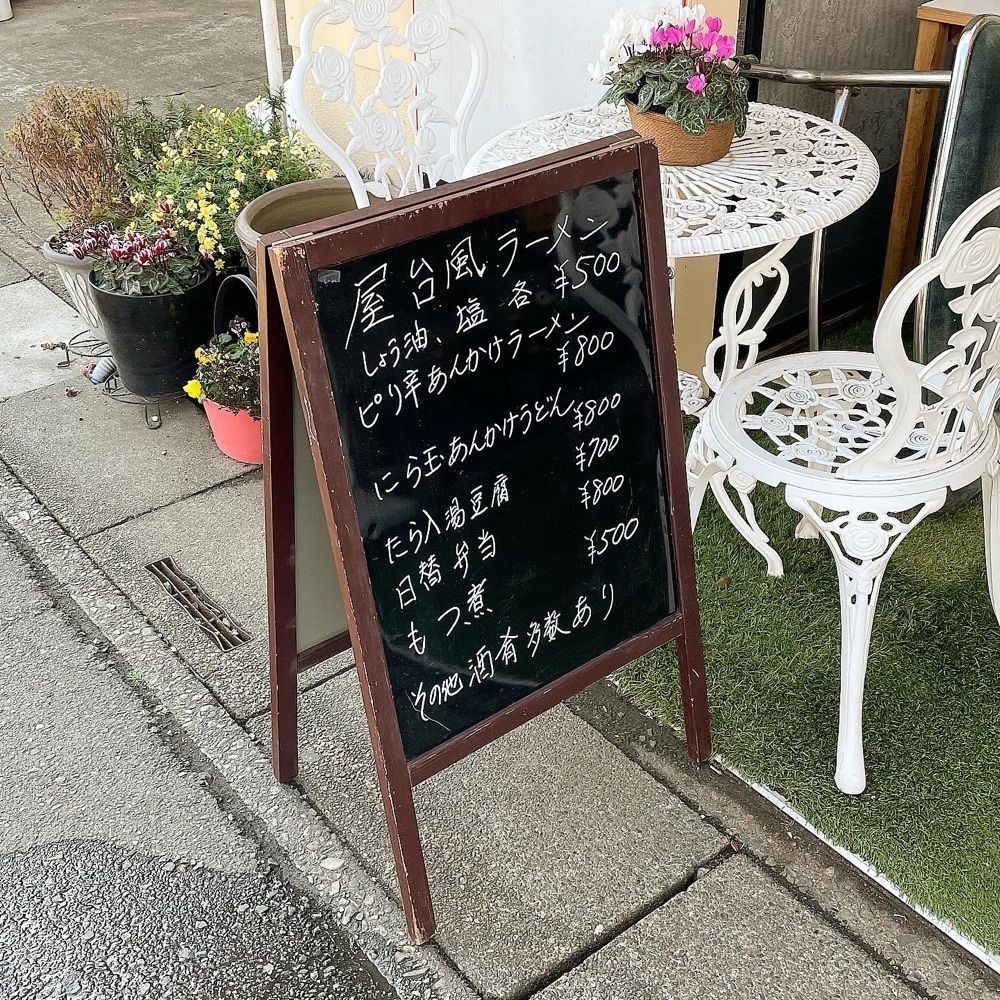 屋台風ラーメン
しょう油、塩 各 ¥500
ピリ辛あんかけラーメン
¥800
にら玉あんかけうどん ¥800
たら入湯豆腐 ¥700
日替弁当 ¥800
もつ煮 ¥500
その他 酒肴多数あり